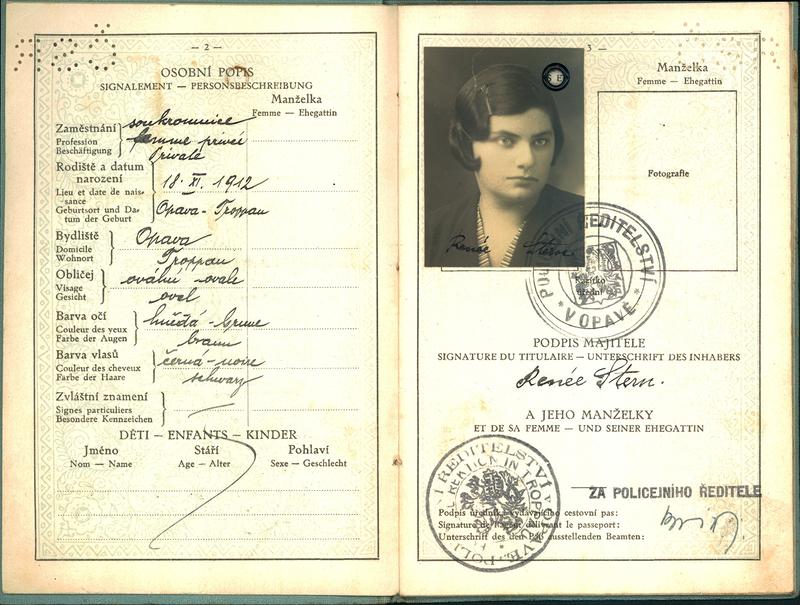 — 2 —
OSOBNÍ POPIS
SIGNALEMENT — PERSONSBESCHREIBUNG
Manželka
Femme — Ehegattin
Zaměstnání
Profession
Beschäftigung
soukromnice
femme privée
Private
Rodiště a datum
narození
Lieu et date de nais-
sance
Geburtsort und Da-
tum der Geburt
18. XI. 1912
Opava-Troppau
Bydliště
Domicile
Wohnort
Opava
Troppau
Obličej
Visage
Gesicht
oválný - ovale
oval
Barva očí
Couleur des yeux
Farbe der Augen
hnědá - brune
braun
Barva vlasů
Couleur des cheveux
Farbe der Haare
černá - noire
schwarz
Zvláštní znamení
Signes particuliers
Besondere Kennzeichen
DĚTI — ENFANTS — KINDER
Jméno Stáří Pohlaví
Nom — Name Age — Alter Sexe — Geschlecht
3 —
Manželka
Femme — Ehegattin
Fotografie
Renée Stern
ŘEDITELSTVÍ
V OPAVĚ
PODPIS MAJITELE
SIGNATURE DU TITULAIRE — UNTERSCHRIFT DES INHABERS
Renée Stern.
A JEHO MANŽELKY
ET DE SA FEMME — UND SEINER EHEGATTIN
ŘEDITELSTVÍ V OPAVĚ
IN TROPPAU
ZA POLICEJNÍHO ŘEDITELE
Podpis úředníka vydávajícího cestovní pas:
Signature de l'agent délivrant le passeport:
Unterschrift des den Paß ausstellenden Beamten: